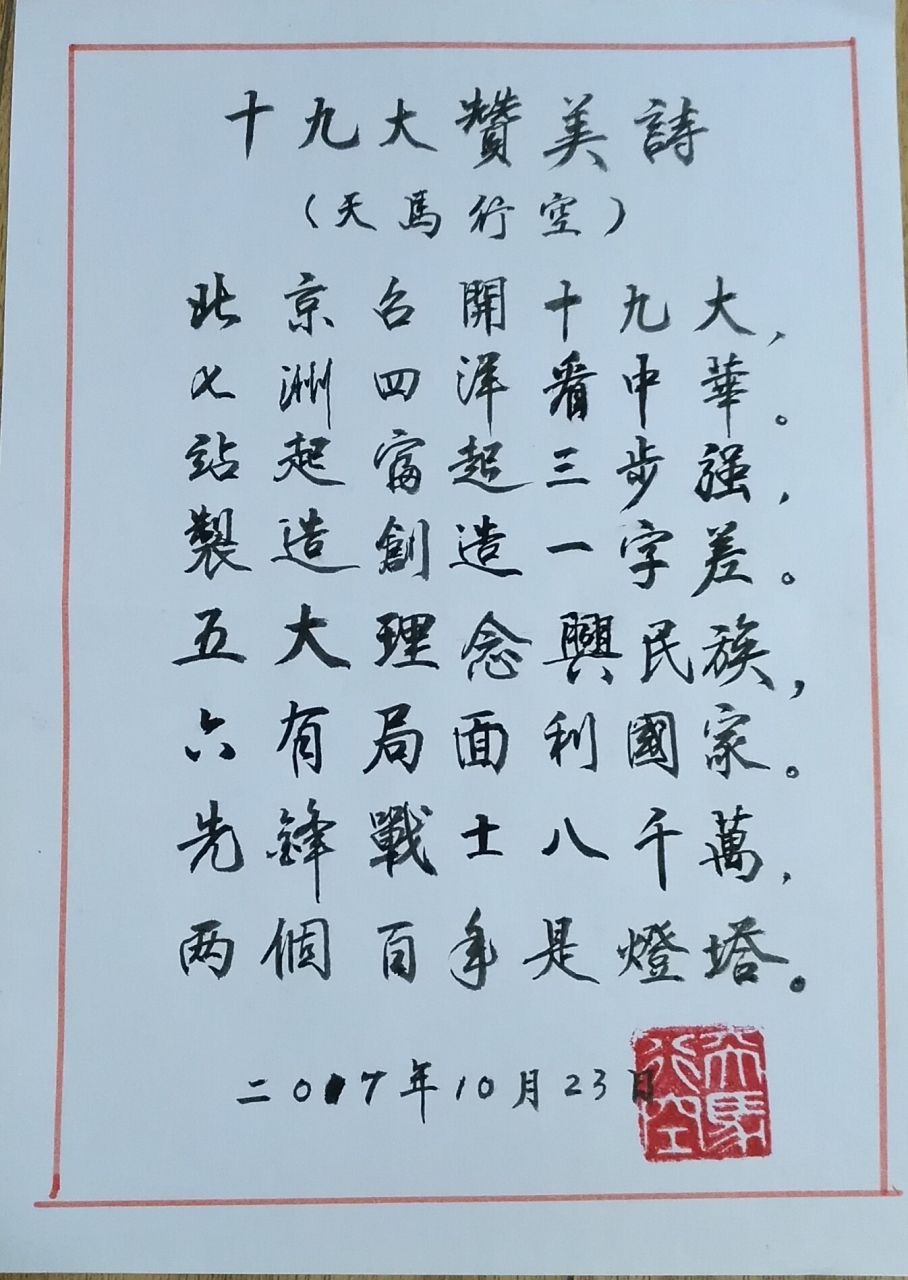 十九大贊美詩
（天馬行空）
北京召開十九大，
七洲四洋看中華。
站起富起三步强，
製造創造一字差。
五大理念興民族，
六有局面利國家。
先鋒戰士八千萬，
两個百年是燈塔。
二017年10月23日
天馬行空